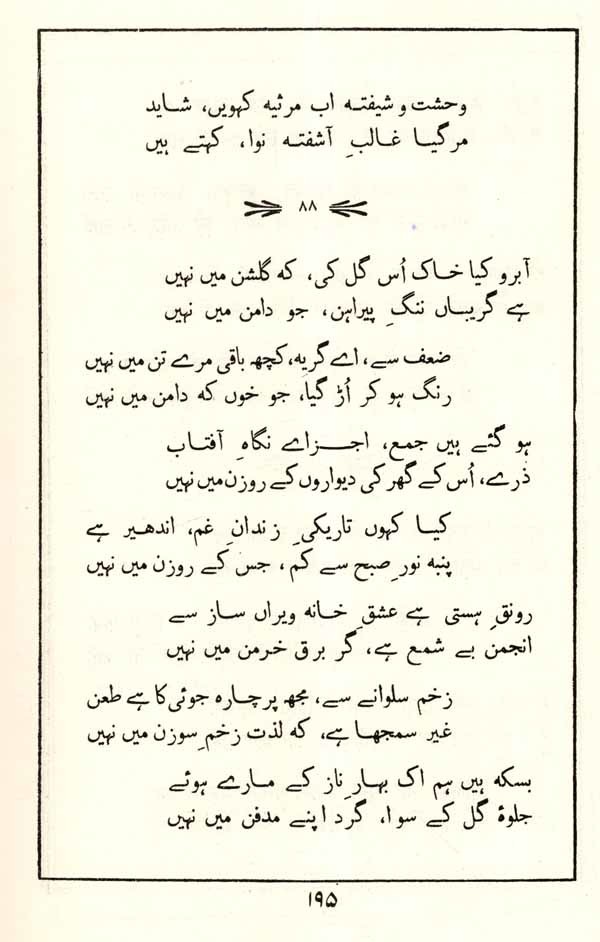 وحشت و شیفتہ اب مرثیہ کہویں، شاید
مرگیا غالبِ آشفتہ نوا، کہتے ہیں
۸۸
آبرو کیا خاک اُس گل کی، کہ گلشن میں نہیں
ہے گریباں ننگِ پیراہن، جو دامن میں نہیں
ضعف سے، اے گریہ، کچھ باقی مرے تن میں نہیں
رنگ ہو کر اُڑ گیا، جو خوں کہ دامن میں نہیں
ہو گئے ہیں جمع، اجزاے نگاہِ آفتاب
ذرے، اُس کے گھر کی دیواروں کے روزن میں نہیں
کیا کہوں تاریکیِ زندانِ غم، اندھیر ہے
پنبہ نورِ صبح سے کم، جس کے روزن میں نہیں
رونقِ ہستی ہے عشقِ خانہ ویراں ساز سے
انجمن بے شمع ہے، گر برق خرمن میں نہیں
زخم سلوانے سے، مجھ پر چارہ جوئی کا ہے طعن
غیر سمجھا ہے، کہ لذت زخمِ سوزن میں نہیں
بسکہ ہیں ہم اک بہارِ ناز کے مارے ہوئے
جلوۂ گل کے سوا، گرد اپنے مدفن میں نہیں
۱۹۵